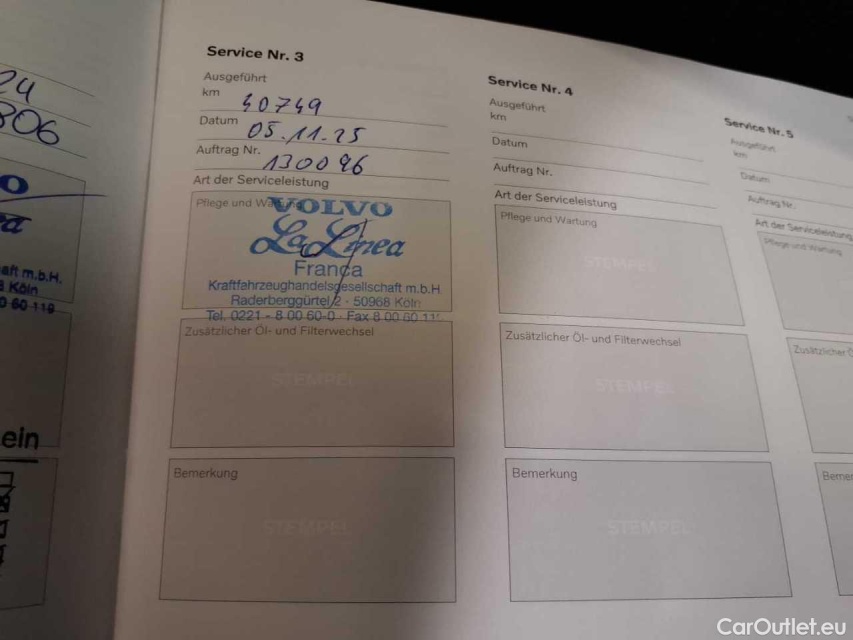 24
806
o
ra
aft m.b.H.
8 Köln
0 60 119
ein
Service Nr. 3
Ausgeführt
km 40749
Datum 05.11.25
Auftrag Nr. 130096
Art der Serviceleistung
Pflege und Wartung
VOLVO
La Linea
Franca
Kraftfahrzeughandelsgesellschaft m.b.H.
Raderberggürtel 2 · 50968 Köln
Tel. 0221 - 8 00 60-0 · Fax 8 00 60 11
Zusätzlicher Öl- und Filterwechsel
STEMPEL
Bemerkung
STEMPEL
Service Nr. 4
Ausgeführt
km
Datum
Auftrag Nr.
Art der Serviceleistung
Pflege und Wartung
STEMPEL
Zusätzlicher Öl- und Filterwechsel
STEMPEL
Bemerkung
STEMPEL
Service Nr. 5
Ausgeführt
km
Datum
Auftrag Nr.
Art der Serviceleistung
Pflege und Wartung
Zusätzlicher Ö
Bemer
CarOutlet.eu